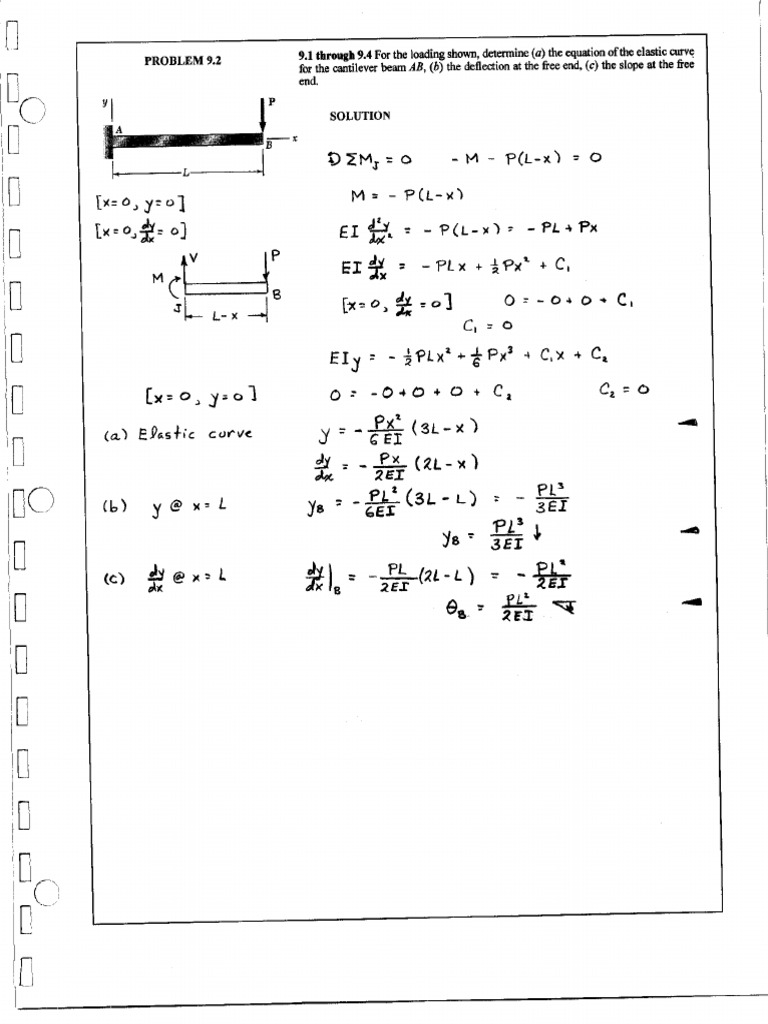 PROBLEM 9.2
9.1 through 9.4 For the loading shown, determine (a) the equation of the elastic curve
for the cantilever beam AB, (b) the deflection at the free end, (c) the slope at the free
end.
y
P
A
B
x
L
SOLUTION
ΣM_J = 0    - M - P(L-x) = 0
M = - P(L-x)
[x=0, y=0]
[x=0, dy/dx = 0]
EI d²y/dx² = - P(L-x) = - PL + Px
EI dy/dx = - PLx + ½Px² + C₁
V
P
M
B
J
L-x
[x=0, dy/dx = 0]    0 = -0 + 0 + C₁
C₁ = 0
EIy = - ½PLx² + ⅙Px³ + C₁x + C₂
[x=0, y=0]    0 = -0+0+0 + C₂    C₂ = 0
(a) Elastic curve    y = - Px²/6EI (3L-x)
dy/dx = - Px/2EI (2L-x)
(b) y @ x=L    y_B = - PL²/6EI (3L-L) = - PL³/3EI
y_B = PL³/3EI ↓
(c) dy/dx @ x=L    dy/dx|_B = - PL/2EI (2L-L) = - PL²/2EI
θ_B = PL²/2EI